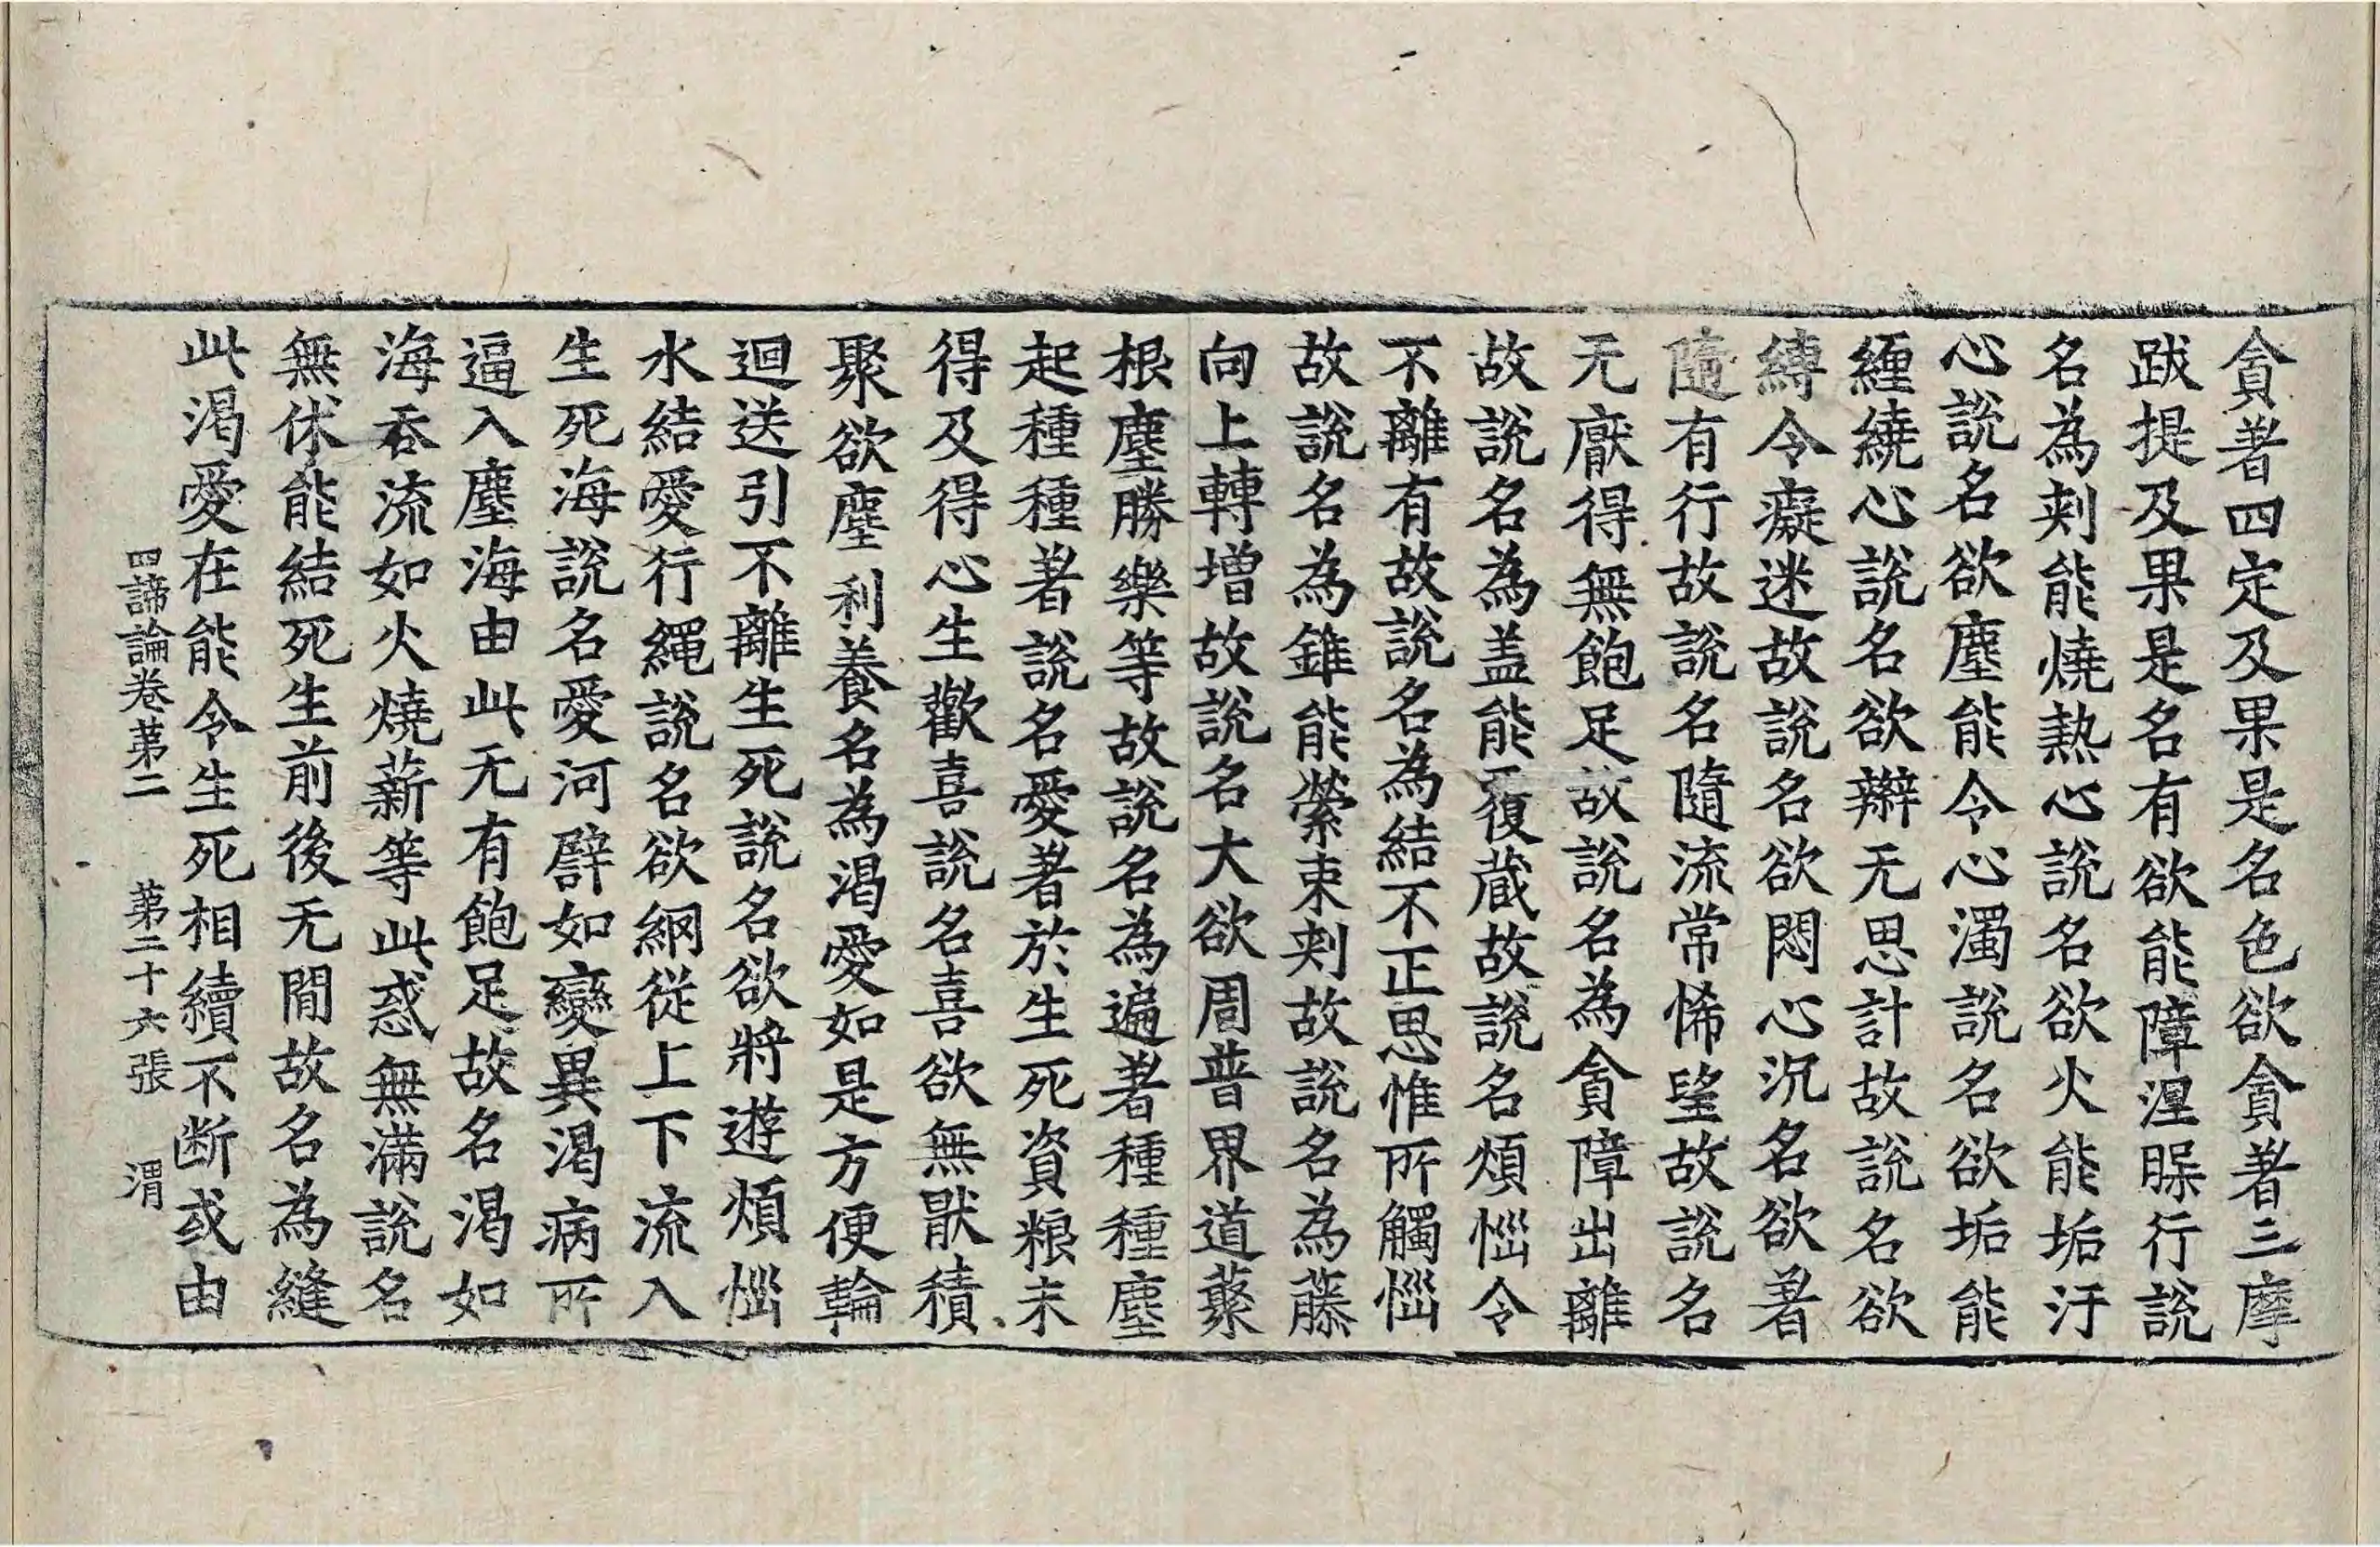 貪著四定及果是名色欲貪著三摩
跋提及果是名有欲能障涅槃行說
名為刺能燒熱心說名欲火能垢汙
心說名欲塵能令心濁說名欲垢能
纏繞心說名欲辮无思計故說名欲
縛令癡迷故說名欲悶心沉名欲著
隨有行故說名隨流常悕望故說名
无厭得無飽足故說名為貪障出離
故說名為盖能覆蔵故說名煩惱令
不離有故說名為結不正思惟所觸惱
故說名為錐能縈束刺故說名為藤
向上轉增故說名大欲周普界道藂
根塵勝樂等故說名為遍著種種塵
起種種著說名愛著於生死資粮未
得及得心生歡喜說名喜欲無猒積
聚欲塵利養名為渴愛如是方便輪
迴送引不離生死說名欲將遊煩惱
水結愛行繩說名欲網從上下流入
生死海說名愛河譬如變異渴病所
逼入塵海由此无有飽足故名渴如
海吞流如火燒薪等此惑無滿說名
無㤕能結死生前後无間故名為縫
此渴愛在能令生死相續不断或由
四諦論卷苐二 苐二十六張 渭